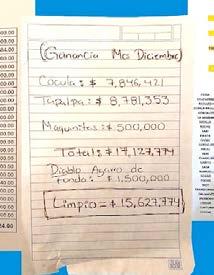 (Ganancia Mes Diciembre)
Cocula: $ 7,846,421
Tapalpa: $ 8,781,353
Maquinitas: $500,000
Total: $17,127,774
Diablo Agarro de
fondo: $1,500,000
Limpio = $15,627,774